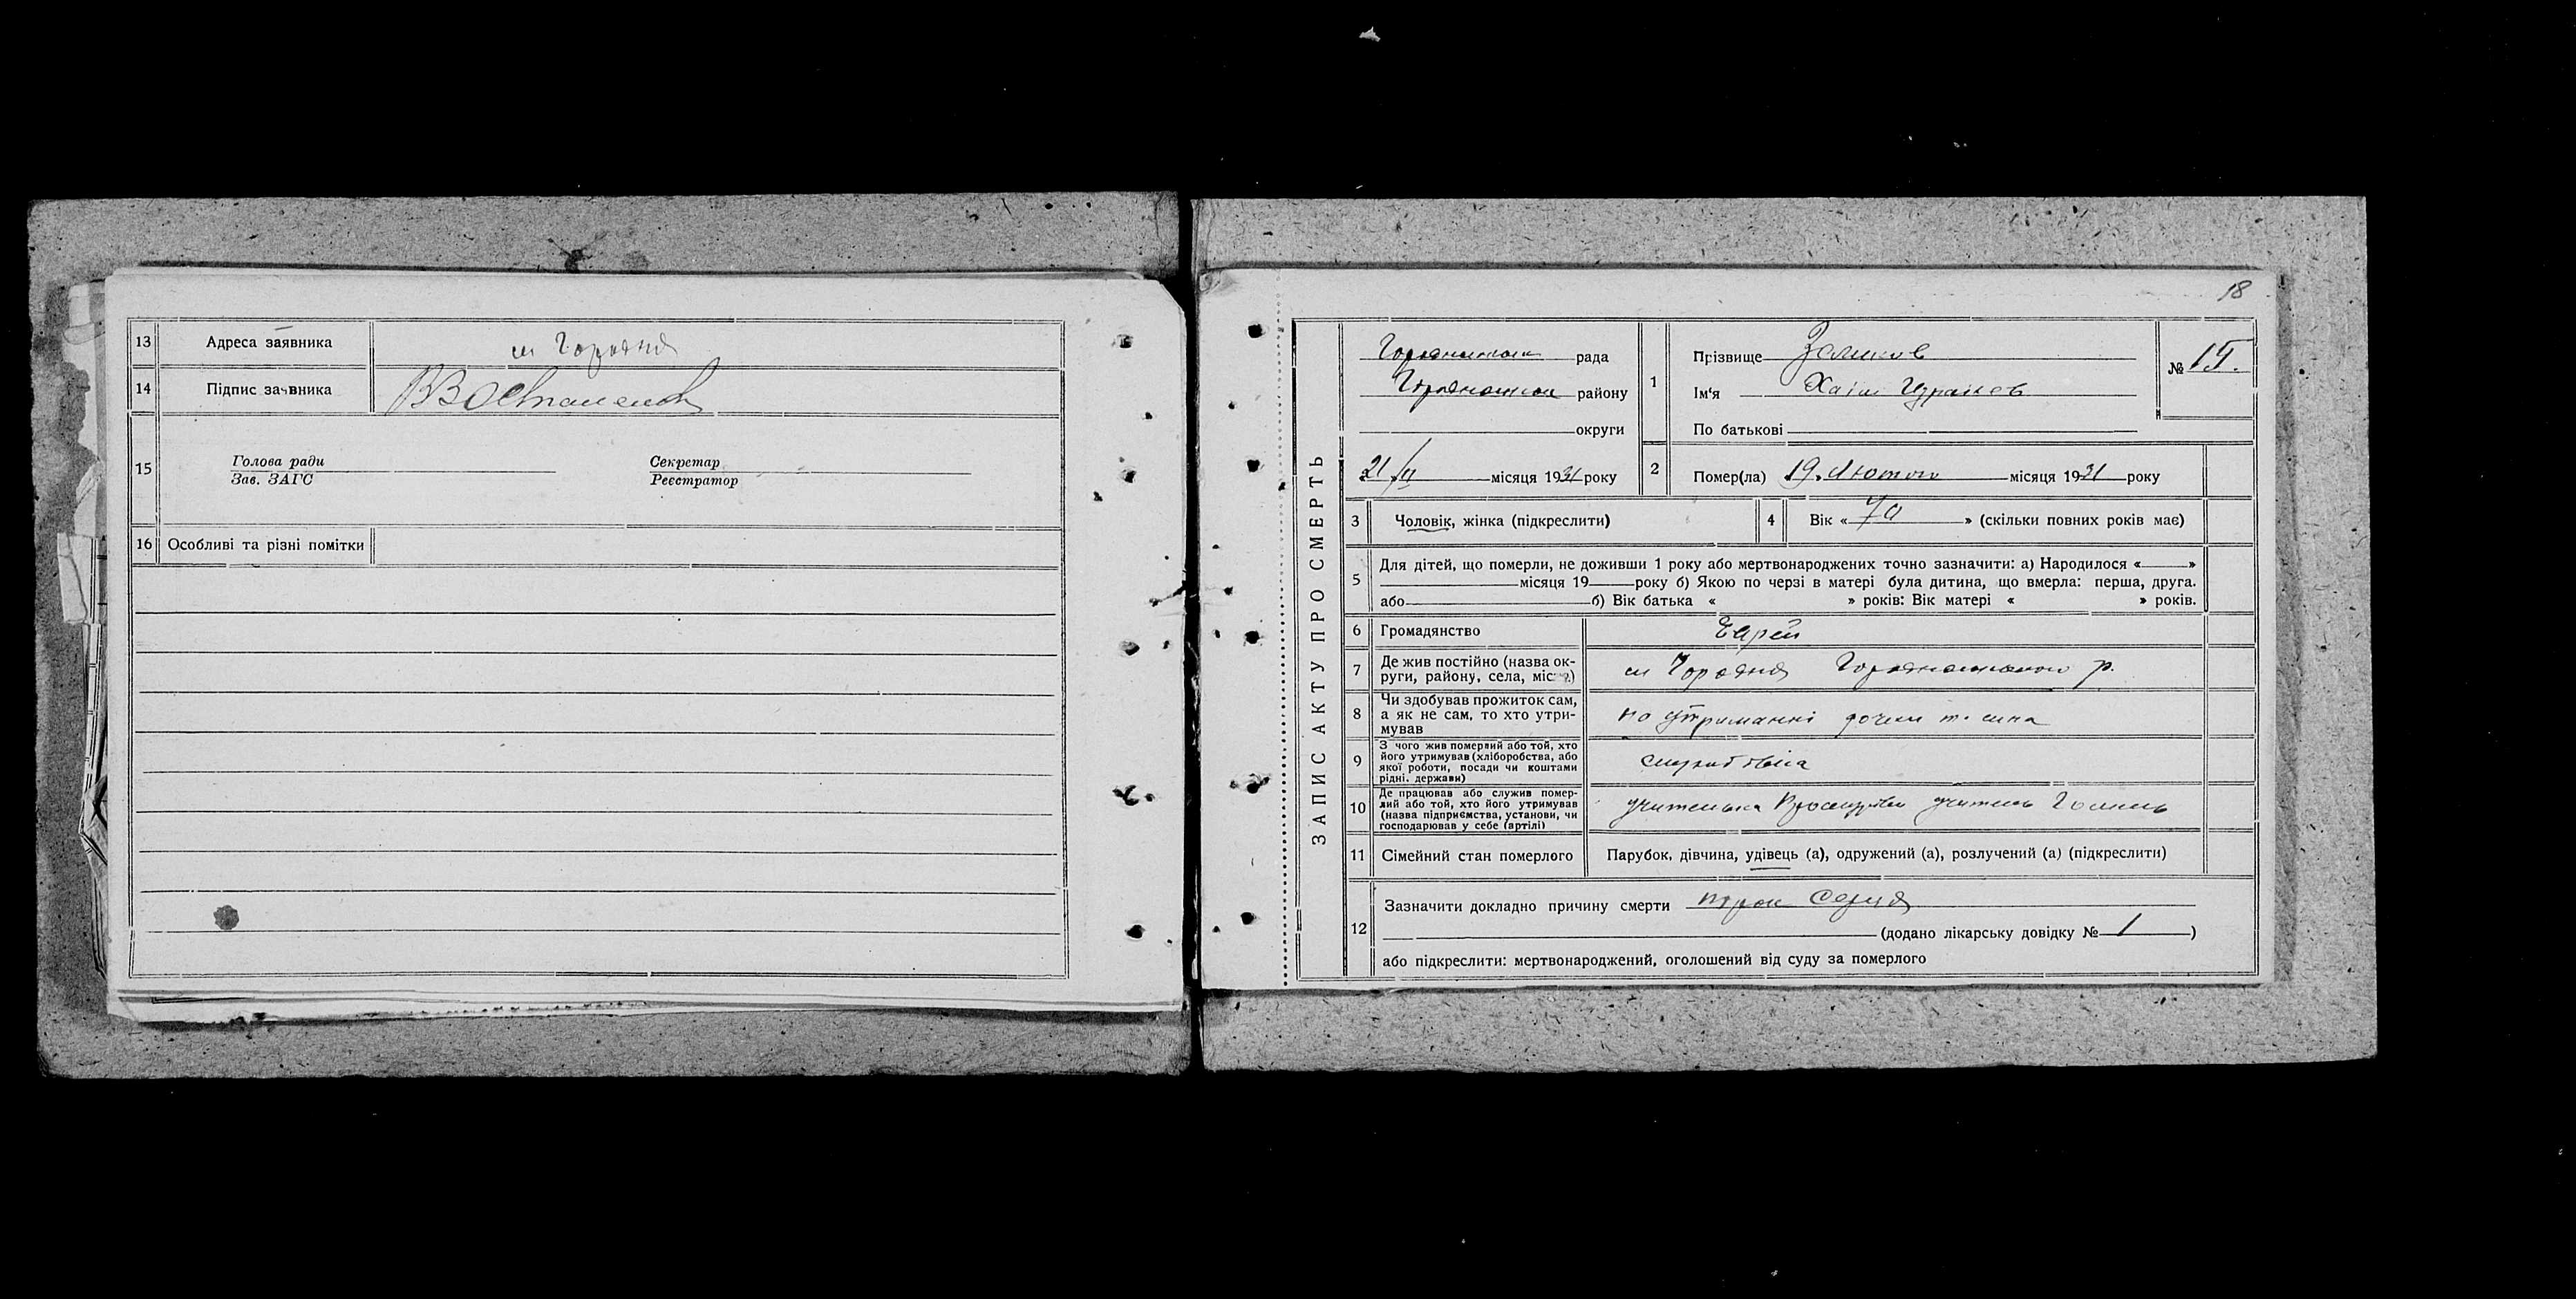 13 Адреса заявника м Городня
14 Підпис заявника
15 Голова ради Секретар
Зав. ЗАГС Реєстратор
16 Особливі та різні помітки
18
ЗАПИС АКТУ ПРО СМЕРТЬ
рада
району
округи
21/II місяця 1931 року
1 Прізвище
Ім'я Хаім
По батькові
№ 15.
2 Помер(ла) 19. Лютого місяця 1931 року
3 Чоловік, жінка (підкреслити)
4 Вік « 70 » (скільки повних років має)
5 Для дітей, що померли, не доживши 1 року або мертвонароджених точно зазначити: а) Народилося « »
місяця 19 року б) Якою по черзі в матері була дитина, що вмерла: перша, друга.
або б) Вік батька « » років: Вік матері « » років.
6 Громадянство Еврей
7 Де жив постійно (назва ок-
руги, району, села, місто) м Городня р.
8 Чи здобував прожиток сам,
а як не сам, то хто утри-
мував
на утриманні дочки та сина
9 З чого жив померлий або той, хто
його утримував (хліборобства, або
якої роботи, посади чи коштами
рідні, держави)
10 Де працював або служив помер-
лий або той, хто його утримував
(назва підприємства, установи, чи
господарював у себе (артілі)
учителька учитель Гомель
11 Сімейний стан померлого Парубок, дівчина, удівець (а), одружений (а), розлучений (а) (підкреслити)
12 Зазначити докладно причину смерти порок серця
(додано лікарську довідку № 1 )
або підкреслити: мертвонароджений, оголошений від суду за померлого